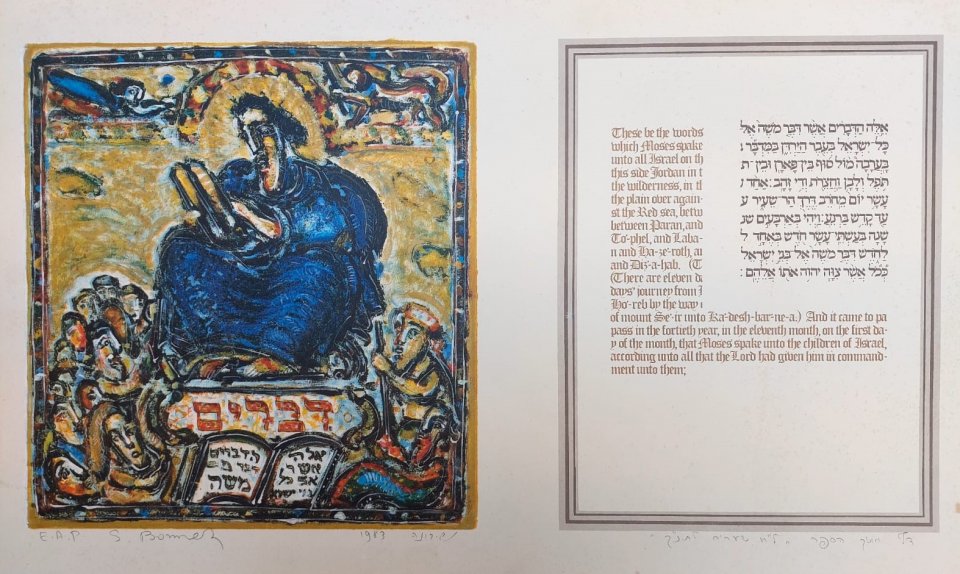 דברים
הדברים
משה
אלה
אשר
E.A.P. S. Bonneh 1983
These be the words
which Moses spake
unto all Israel on th
this side Jordan in t
the wilderness, in th
the plain over again-
st the Red sea, betw
between Paran, and
To-phel, and Laba-
n and Ha-ze-roth, a
and Diz-a-hab. (T
(There are eleven da
days' journey from
Ho-reb by the way
of mount Se-ir unto Ka-desh-bar-ne-a.) And it came to pa
pass in the fortieth year, in the eleventh month, on the first da-
y of the month, that Moses spake unto the children of Israel,
according unto all that the Lord had given him in command-
ment unto them;
אֵלֶּה הַדְּבָרִים אֲשֶׁר דִּבֶּר מֹשֶׁה אֶל
כָּל־יִשְׂרָאֵל בְּעֵבֶר הַיַּרְדֵּן בַּמִּדְבָּר
בָּעֲרָבָה מוֹל סוּף בֵּין־פָּארָן וּבֵין־ת
תֹּפֶל וְלָבָן וַחֲצֵרֹת וְדִי זָהָב׃ אַחַד ע
עָשָׂר יוֹם מֵחֹרֵב דֶּרֶךְ הַר־שֵׂעִיר ע
עַד קָדֵשׁ בַּרְנֵעַ׃ וַיְהִי בְּאַרְבָּעִים שנ
שָׁנָה בְּעַשְׁתֵּי־עָשָׂר חֹדֶשׁ בְּאֶחָד ל
לַחֹדֶשׁ דִּבֶּר מֹשֶׁה אֶל־בְּנֵי יִשְׂרָאֵל
כְּכֹל אֲשֶׁר צִוָּה יְהוָה אֹתוֹ אֲלֵהֶם׃